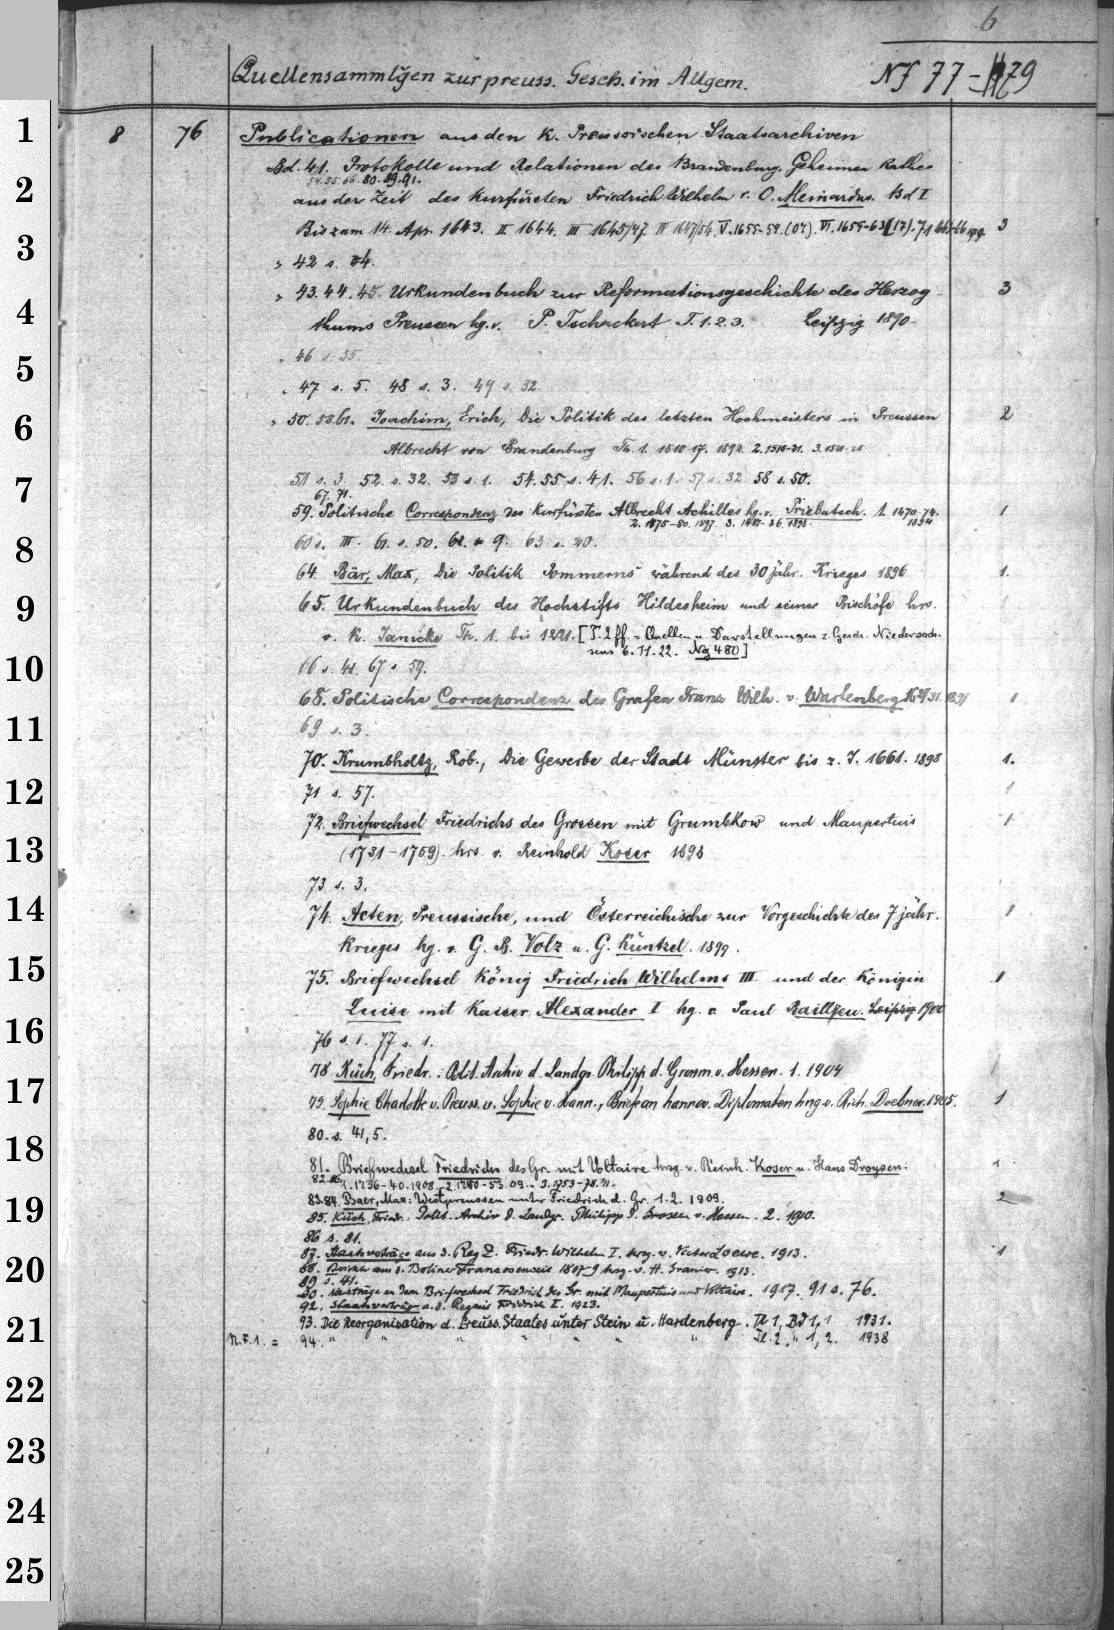 6
Quellensammlgen zur preuss. Gesch. im Allgem. NS 77-79
1 8 76 Publicationen aus den K. Preussischen Staatsarchiven
Bd. 41. Protokolle und Relationen des Brandenburg. Geheimen Rathes
54. 55. 66. 80. 89. 91.
2 aus der Zeit des Kurfürsten Friedrich Wilhelm v. O. Meinardus. Bd I
Bis zum 14. Apr. 1643. II 1644. III 1645/47. IV 1647/54. V. 1655-59. (07). VI. 1655-63 (17). 3
3 " 42 s. 34.
" 43. 44. 45. Urkundenbuch zur Reformationsgeschichte des Herzog- 3
4 thums Preussen hg. v. P. Tschackert T. 1. 2. 3. Leipzig 1890-
" 46 s. 35.
5 " 47 s. 5. 48 s. 3. 49 s. 32.
6 " 50. 58. 61. Joachim, Erich, Die Politik des letzten Hochmeisters in Preussen 2
Albrecht von Brandenburg Th. 1. 1510-17. 1892. 2. 1518-21. 3. 1521-25
7 51 s. 3. 52. s. 32. 53 s. 1. 54. 55 s. 41. 56 s. 1. 57 s. 32. 58 s. 50.
67. 71.
59. Politische Correspondenz des Kurfürsten Albrecht Achilles hg. v. Priebatsch. 1. 1470-74. 1894 1
2. 1475-80. 1897. 3. 1481-86. 1898.
8 60 s. III. 61. s. 50. 62. s. 9. 63 s. 20.
64. Bär, Max, Die Politik Pommerns während des 30 jähr. Krieges 1896 1.
9 65. Urkundenbuch des Hochstifts Hildesheim und seiner Bischöfe hrs.
v. K. Janicke Th. 1. bis 1221. [T. 2 ff. = Quellen u Darstellungen z. Gesch. Niedersach-
sens 6. 11. 22. Ng 480]
10 66 s. 41. 67 s. 59.
68. Politische Correspondenz des Grafen Franz Wilh. v. Wartenberg 1621/31. 1897 1
11 69 s. 3.
70. Krumbholtz, Rob., Die Gewerbe der Stadt Münster bis z. J. 1661. 1898 1.
12 71 s. 57. 1
72. Briefwechsel Friedrichs des Grossen mit Grumbkow und Maupertuis 1
13 (1731-1759). hrs. v. Reinhold Koser 1898
73 s. 3.
14 74. Acten, Preussische, und Österreichische zur Vorgeschichte des 7 jähr. 1
Krieges hg. v. G. B. Volz u. G. Küntzel. 1899.
15 75. Briefwechsel König Friedrich Wilhelms III und der Königin 1
Luise mit Kaiser Alexander I hg. v. Paul Bailleu. Leipzig 1900
16 76 s. 1. 77 s. 1.
78. Küch, Friedr.: Polit. Archiv d. Landgr. Philipp d. Grosm. v. Hessen. 1. 1904 1
17 79. Sophie Charlotte v. Preuss. u. Sophie v. Hann., Briefe an hannov. Diplomaten hrsg. v. Rich. Doebner. 1905. 1
80. s. 41, 5.
18 81. Briefwechsel Friedrichs des Gr. mit Voltaire hrsg. v. Reinh. Koser u. Hans Droysen. 1
82. 86. 1. 1736-40. 1908. 2. 1740-53. 09. 3. 1753-78. 11.
83. 84. Baer, Max. Westpreussen unter Friedrich d. Gr. 1. 2. 1909. 2
19 85. Küch, Friedr. Polit. Archiv d. Landgr. Philipp d. Grossm. v. Hessen. 2. 1910.
86 s. 81.
87. Staatsverträge aus d. Reg Z. Friedr. Wilhelm I. hrsg. v. Victor Loewe. 1913. 1
20 88. Berichte aus d. Berliner Franzosenzeit 1807-9 hrsg. v. H. Granier. 1913.
89 s. 41.
90. Nachträge zu dem Briefwechsel Friedrich des Gr. mit Maupertuis und Voltaire. 1917. 91 s. 76.
92. Staatsverträge a. d. Regzeit Friedrich I. 1923.
21 93. Die Reorganisation d. Preuss. Staates unter Stein u. Hardenberg. Tl 1, Bd 1, 1 1931.
N. F. 1. = 94. " " " " " " " Tl. 2, " 1, 2. 1938
22
23
24
25